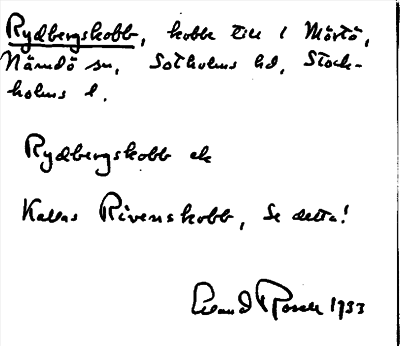 Rydbergskobb, kobbe till 1 Mörtö,
Nämdö sn, Sotholms hd, Stock-
holms l.
Rydbergskobb ek
Kallas Rivenskobb, Se detta!
1933